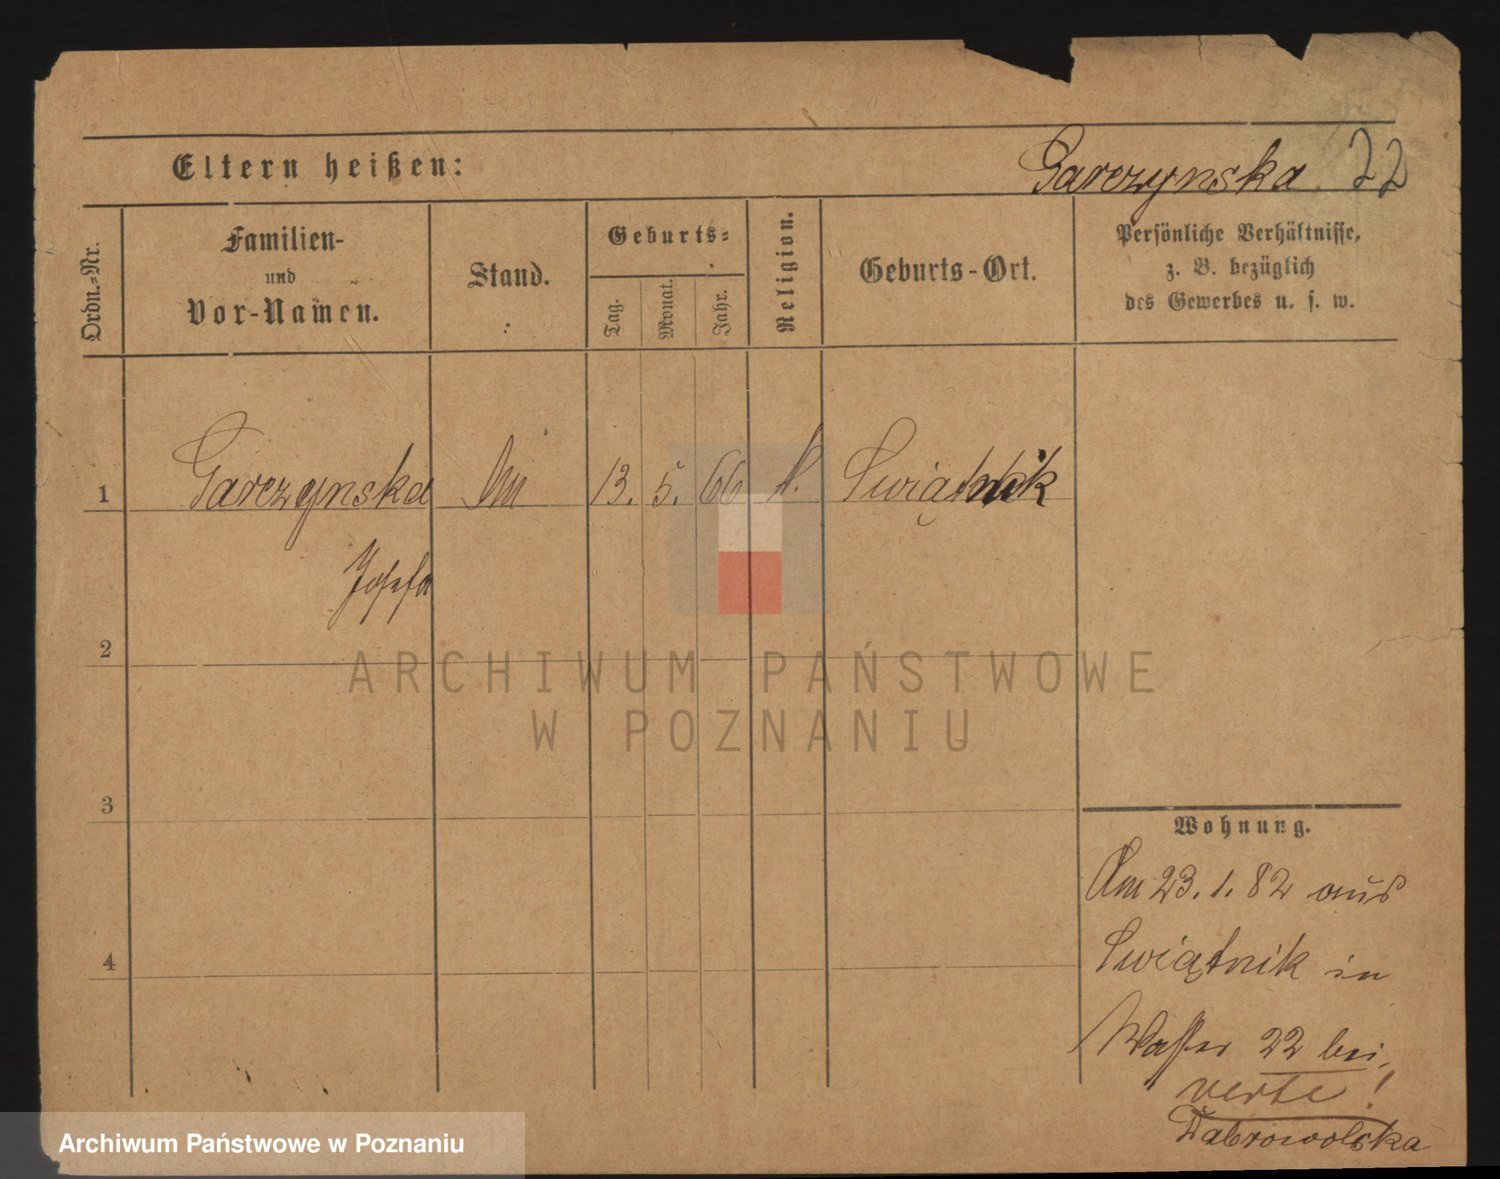 Eltern heißen:
Garczynska 22
Ordn.-Nr.
Familien-
und
Vor-Namen.
Stand.
Geburts-
Tag.
Monat.
Jahr.
Religion.
Geburts-Ort.
Persönliche Verhältnisse,
z. B. bezüglich
des Gewerbes u. s. w.
1 Garczynska 13. 5. 66 k. Swiątnik
Josefa
2
3
4
Wohnung.
Am 23. 1. 82 aus
Swiątnik in
Wasser 22 bei
verte!
Dabrowolska
ARCHIWUM PAŃSTWOWE
W POZNANIU
Archiwum Państwowe w Poznaniu